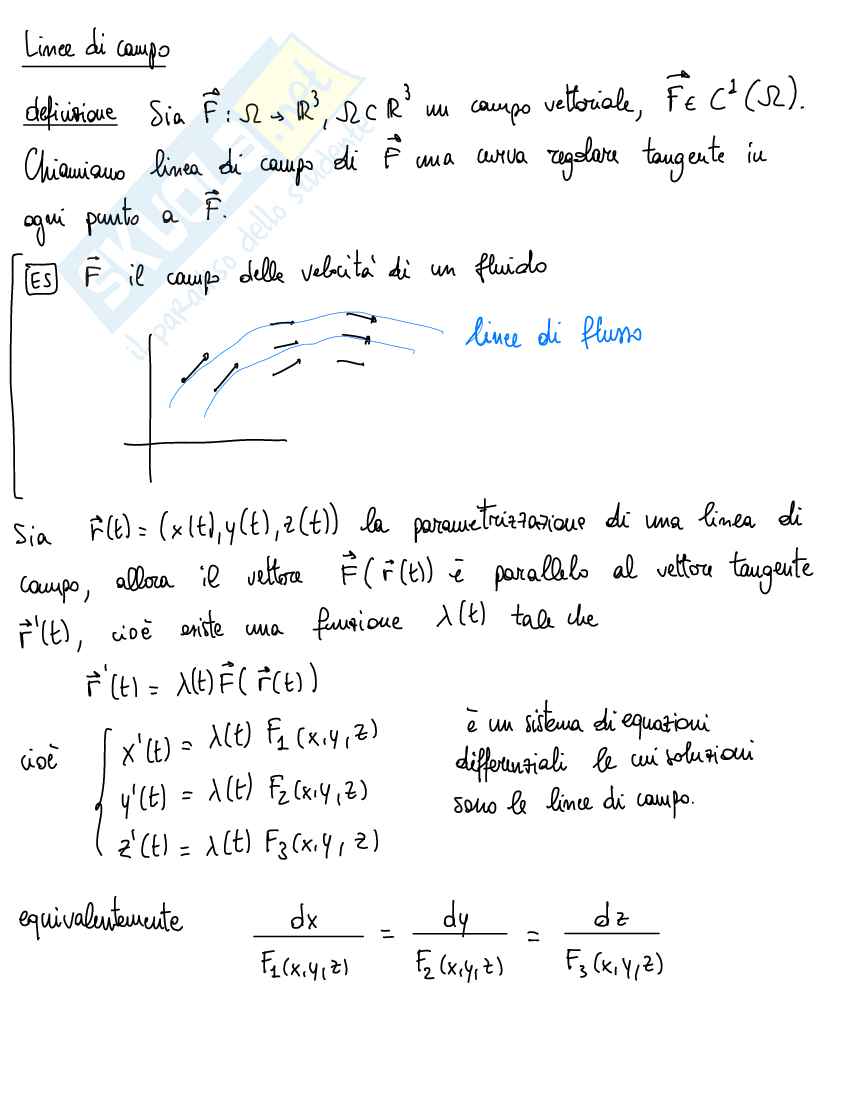 Linee di campo
definizione Sia F⃗: Ω → ℝ³, Ω ⊂ ℝ³ un campo vettoriale, F⃗ ∈ C¹(Ω).
Chiamiamo linea di campo di F⃗ una curva regolare tangente in
ogni punto a F⃗.
ES F⃗ il campo delle velocità di un fluido
linee di flusso
Sia r⃗(t) = (x(t), y(t), z(t)) la parametrizzazione di una linea di
campo, allora il vettore F⃗(r⃗(t)) è parallelo al vettore tangente
r⃗'(t), cioè esiste una funzione λ(t) tale che
r⃗'(t) = λ(t) F⃗(r⃗(t))
cioè { x'(t) = λ(t) F₁(x,y,z)
y'(t) = λ(t) F₂(x,y,z)
z'(t) = λ(t) F₃(x,y,z)
è un sistema di equazioni
differenziali le cui soluzioni
sono le linee di campo.
equivalentemente dx/F₁(x,y,z) = dy/F₂(x,y,z) = dz/F₃(x,y,z)
SKUOLA.net
il paradiso dello studente